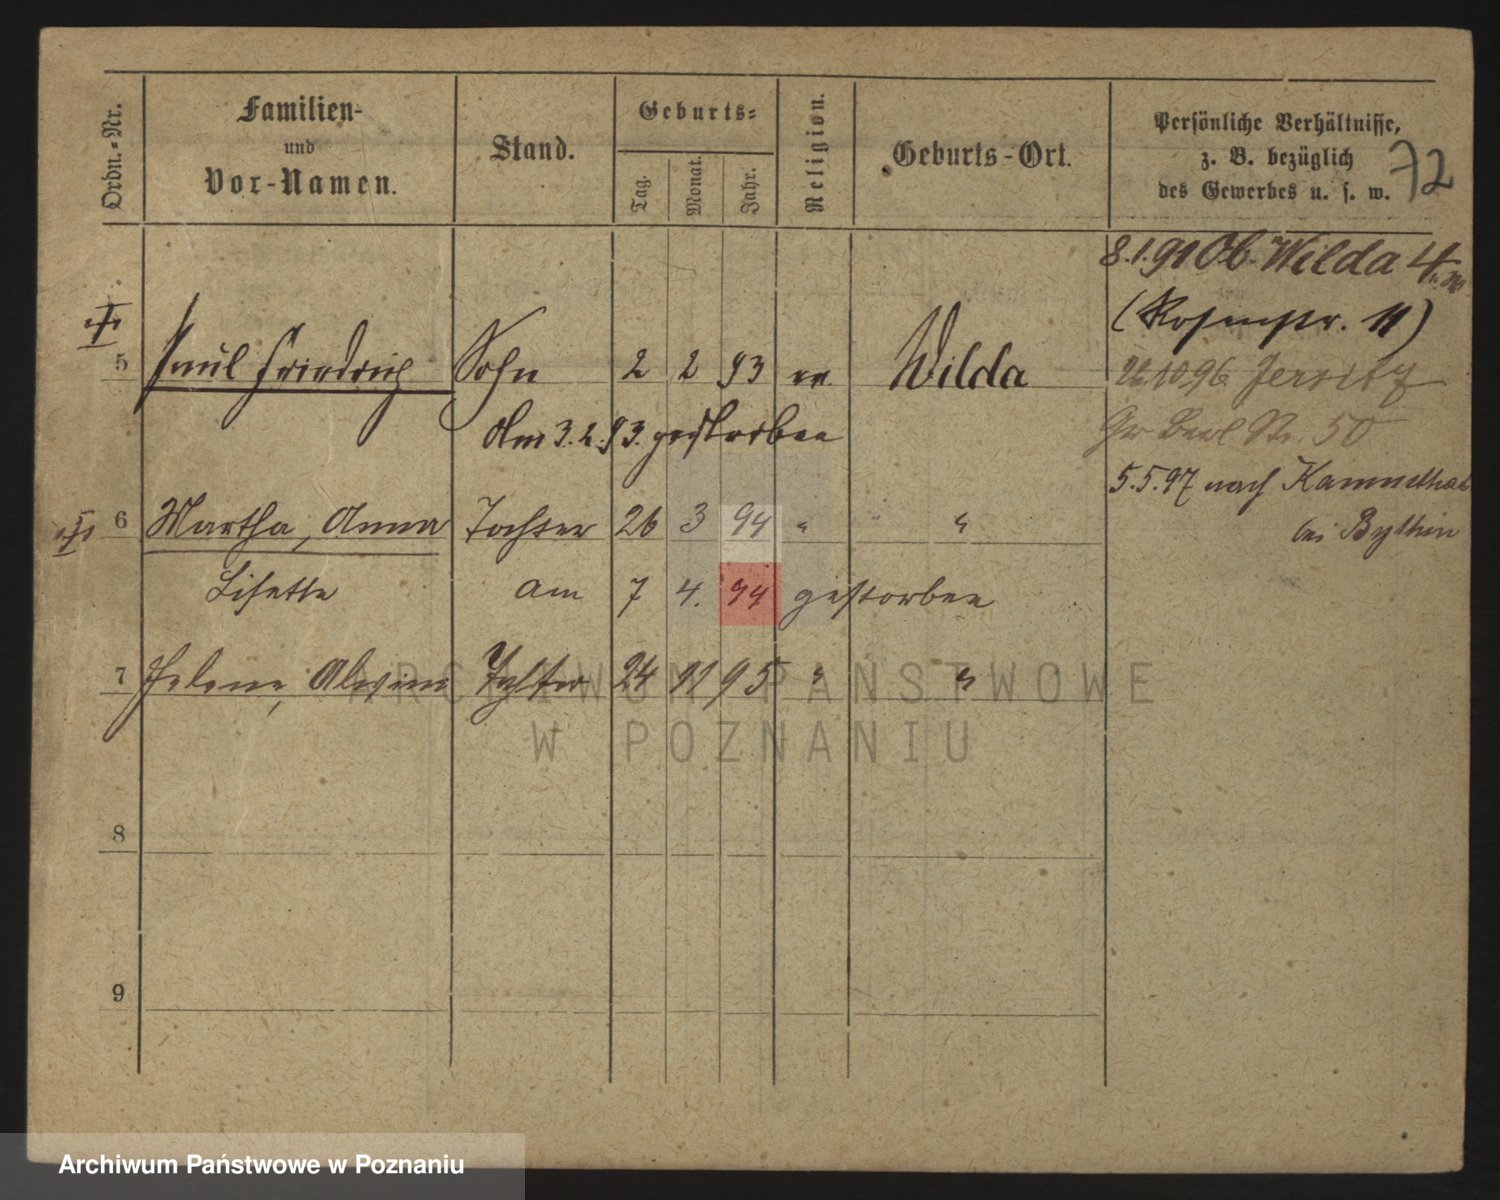 Ordn.-Nr.
Familien-
und
Vor-Namen.
Stand.
Geburts-
Tag.
Monat.
Jahr.
Religion.
Geburts-Ort.
Persönliche Verhältnisse,
z. B. bezüglich
des Gewerbes u. s. w.
72
8.1.91 Ob. Wilda 4
(Rosenstr. 11)
5 Paul Friedrich Sohn 2 2 93 ev. Wilda
26.10.96 Jersitz
Am 3.2.93. gestorben
Gr Berl Str. 50
5.5.97 nach Kammthal
6 Martha, Anna Tochter 26 3 94 " " "
bei Bythin
Lisette am 7 4. 94 gestorben
7 Helene, Alwine Tochter 24 11 95 " "
ARCHIWUM PAŃSTWOWE
W POZNANIU
8
9
Archiwum Państwowe w Poznaniu